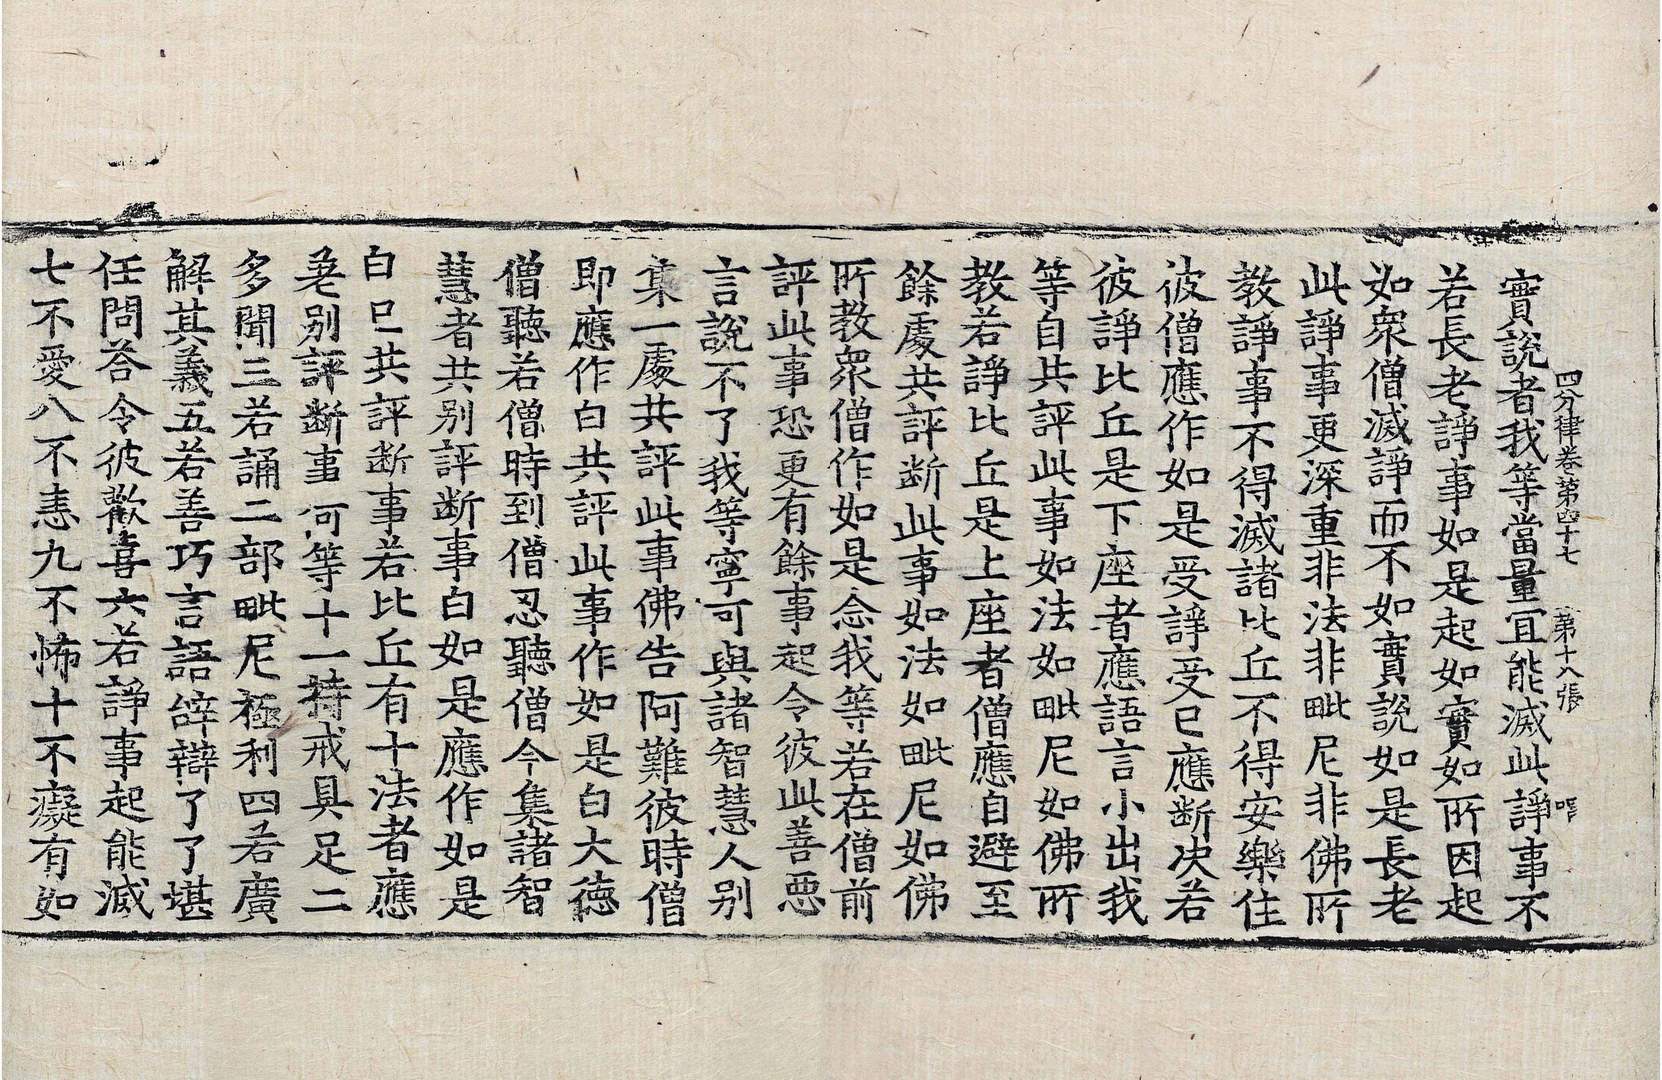 四分律卷第四十七 第十八張
實說者我等當量宜能滅此諍事不
若長老諍事如是起如實如所因起
如衆僧滅諍而不如實說如是長老
此諍事更深重非法非毗尼非佛所
教諍事不得滅諸比丘不得安樂住
彼僧應作如是受諍受已應断决若
彼諍比丘是下座者應語言小出我
等自共評此事如法如毗尼如佛所
教若諍比丘是上座者僧應自避至
餘處共評断此事如法如毗尼如佛
所教衆僧作如是念我等若在僧前
評此事恐更有餘事起令彼此善惡
言說不了我等寧可與諸智慧人别
集一處共評此事佛告阿難彼時僧
即應作白共評此事作如是白大德
僧聽若僧時到僧忍聽僧今集諸智
慧者共别評断事白如是應作如是
白已共評断事若比丘有十法者應
差别評断事何等十一持戒具足二
多聞三若誦二部毗尼極利四若廣
解其義五若善巧言語辞辯了了堪
任問荅令彼歡喜六若諍事起能滅
七不愛八不恚九不怖十不癡有如